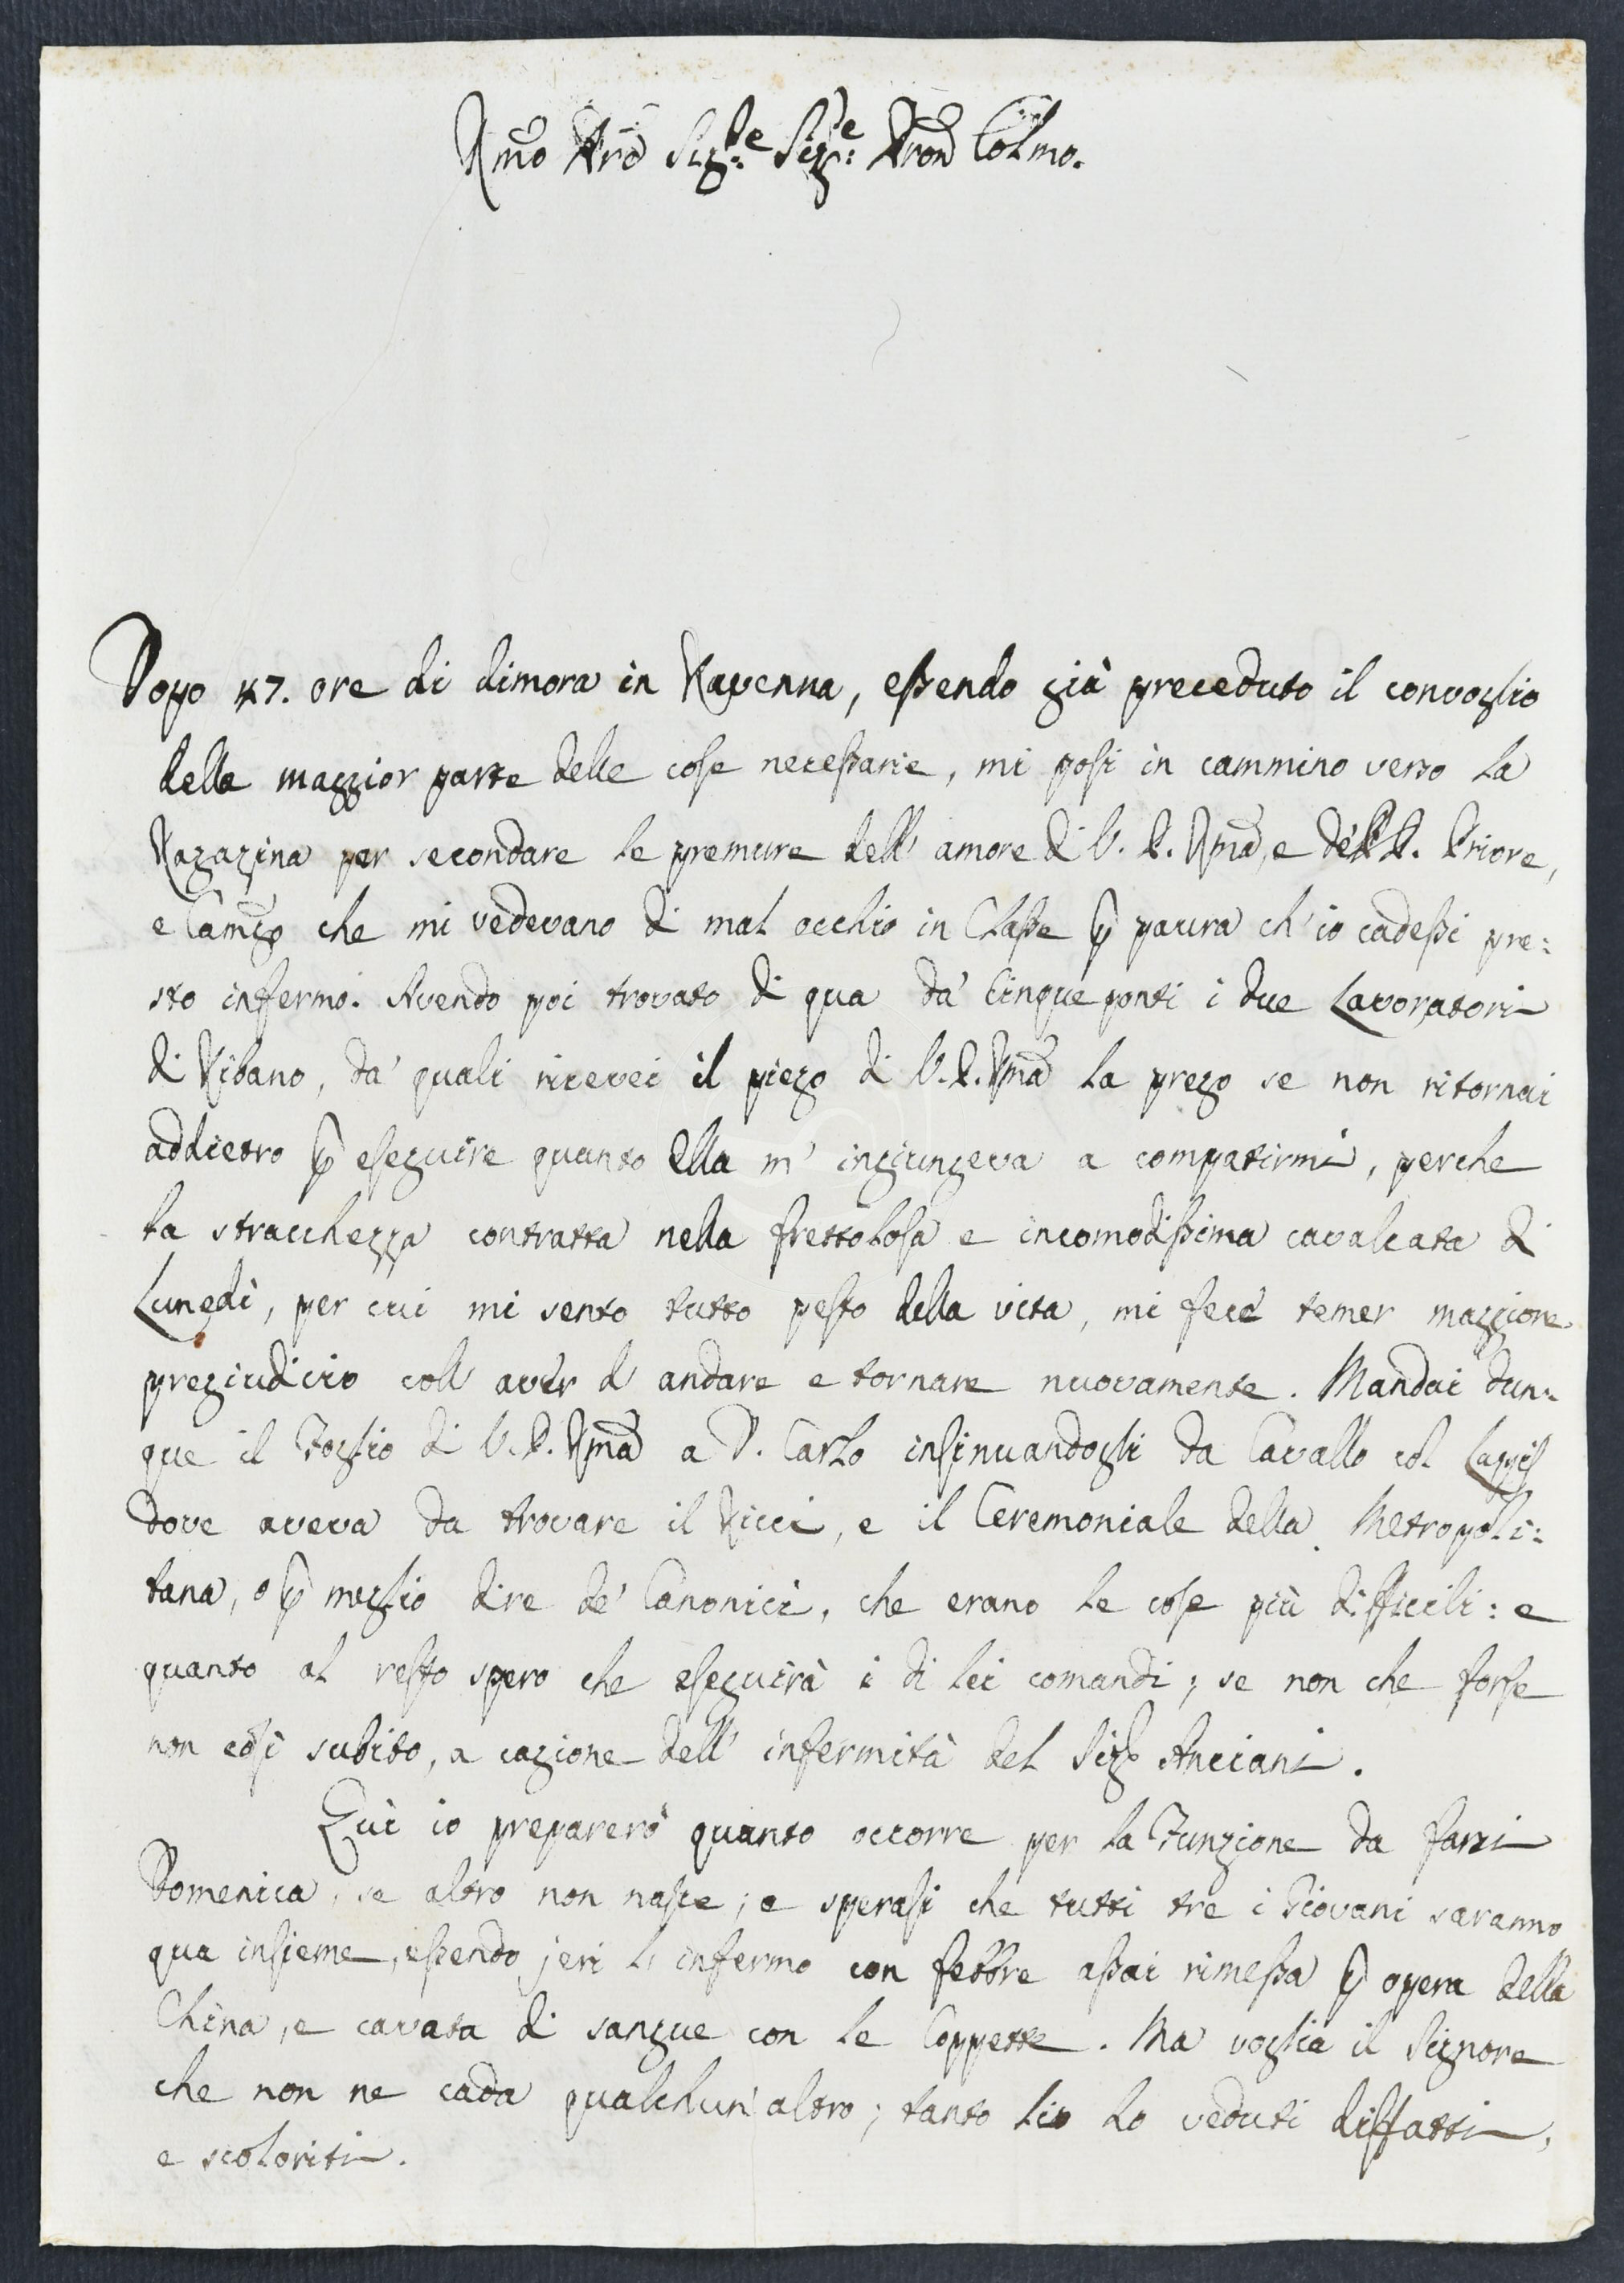 Rmo Pre Sig:re Sig:re Pron Colmo.
Dopo 47. ore di dimora in Ravenna, essendo già preceduto il convoglio
della maggior parte delle cose necessarie, mi posi in cammino verso la
Ragazina per secondare le premure dell' amore di V. P. Rma, e de' PP. Priore,
e Camgo che mi vedevano di mal occhio in Classe p paura ch' io cadessi pre:
sto infermo. Avendo poi trovato di qua da' Cinque ponti i due Lavoratori
di Ribano, da' quali ricevei il piego di V. P. Rma la prego se non ritornai
addietro p eseguire quanto Ella m' ingiungeva a compatirmi, perche
la stracchezza contratta nella frettolosa e incomodissima cavalcata di
Lunedì, per cui mi sento tutto pesto della vita, mi fece temer maggiore
pregiudicio coll aver d andare e tornare nuovamente. Mandai dun:
que il Foglio di V. P. Rma a D. Carlo insinuandogli da Cavallo col Lappis
dove aveva da trovare il Ricci, e il Ceremoniale della Metropoli:
tana, o p meglio dire de' Canonici, che erano le cose più difficili: e
quanto al resto spero che eseguirà i di lei comandi; se non che forse
non così subito, a cagione dell' infermità del Sigr Anciani.
Quì io preparerò quanto occorre per la Funzione da farsi
Domenica, se altro non nasce; e sperasi che tutti tre i Giovani saranno
qua insieme, essendo jeri l' infermo con febbre assai rimessa p opera della
China, e cavata di sangue con le Coppette. Ma voglia il Signore
che non ne cada qualchun' altro; tanto li ho veduti disfatti,
e scoloriti.